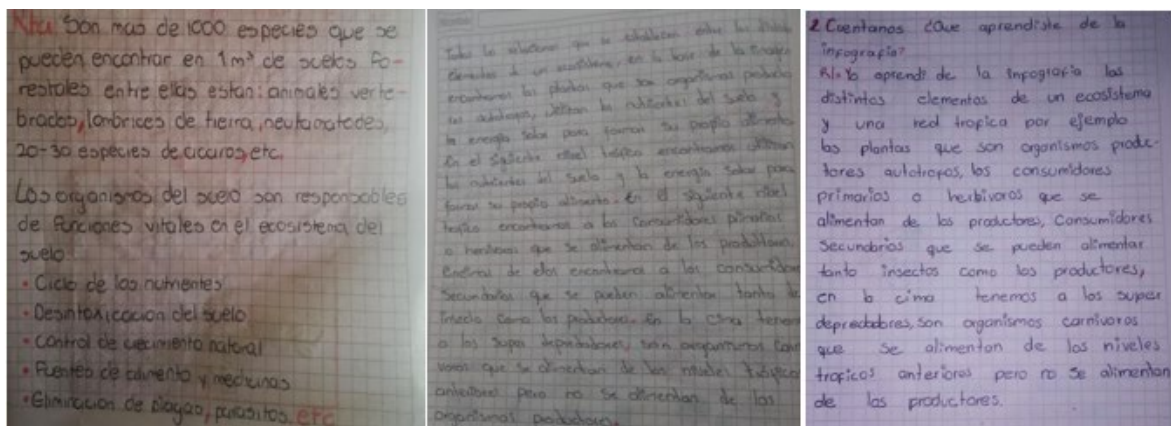 Rta Son mas de 1000 especies que se
pueden encontrar en 1m³ de suelos fo-
restales entre ellas estan: animales verte-
brados, lombrices de tierra,
20-30 especies de acaros, etc.
Los organismos del suelo son responsables
de funciones vitales en el ecosistema del
suelo
• Ciclo de los nutrientes
• Desintoxicacion del suelo
• control de crecimiento natural
• Fuentes de alimento y medicinas
• Eliminacion de plagas, parasitos etc
Todas las relaciones que se establecen entre los
elementos de un ecosistema, en la base de la imagen
encontramos las plantas que son organismos
autotropos, utilizan los nutrientes del suelo y
la energia solar para formar su propio alimento
En el siguiente nivel trofico encontramos utilizan
los nutrientes del suelo y la energia solar para
formar su propio alimento. En el siguiente nivel
trofico encontramos a los consumidores primarios
o herbivoros que se alimentan de los productores,
encima de ellos encontramos a los consumidores
Secundarios que se pueden alimentar tanto de
insecto como los productores. en la cima tenemos
a los super depredadores, son organismos
que se alimentan de los niveles troficos
anteriores pero no se alimentan de los
organismos productores.
2 Cuentanos ¿Que aprendiste de la
infografia?
R/= Yo aprendi de la infografia los
distintos elementos de un ecosistema
y una red tropica por ejemplo
las plantas que son organismos produc-
tores autotropos, los consumidores
primarios o herbivoros que se
alimentan de los productores, Consumidores
Secundarios que se pueden alimentar
tanto insectos como los productores,
en la cima tenemos a los super
depredadores, son organismos carnivoros
que se alimentan de los niveles
tropicos anteriores pero no se alimentan
de los productores.